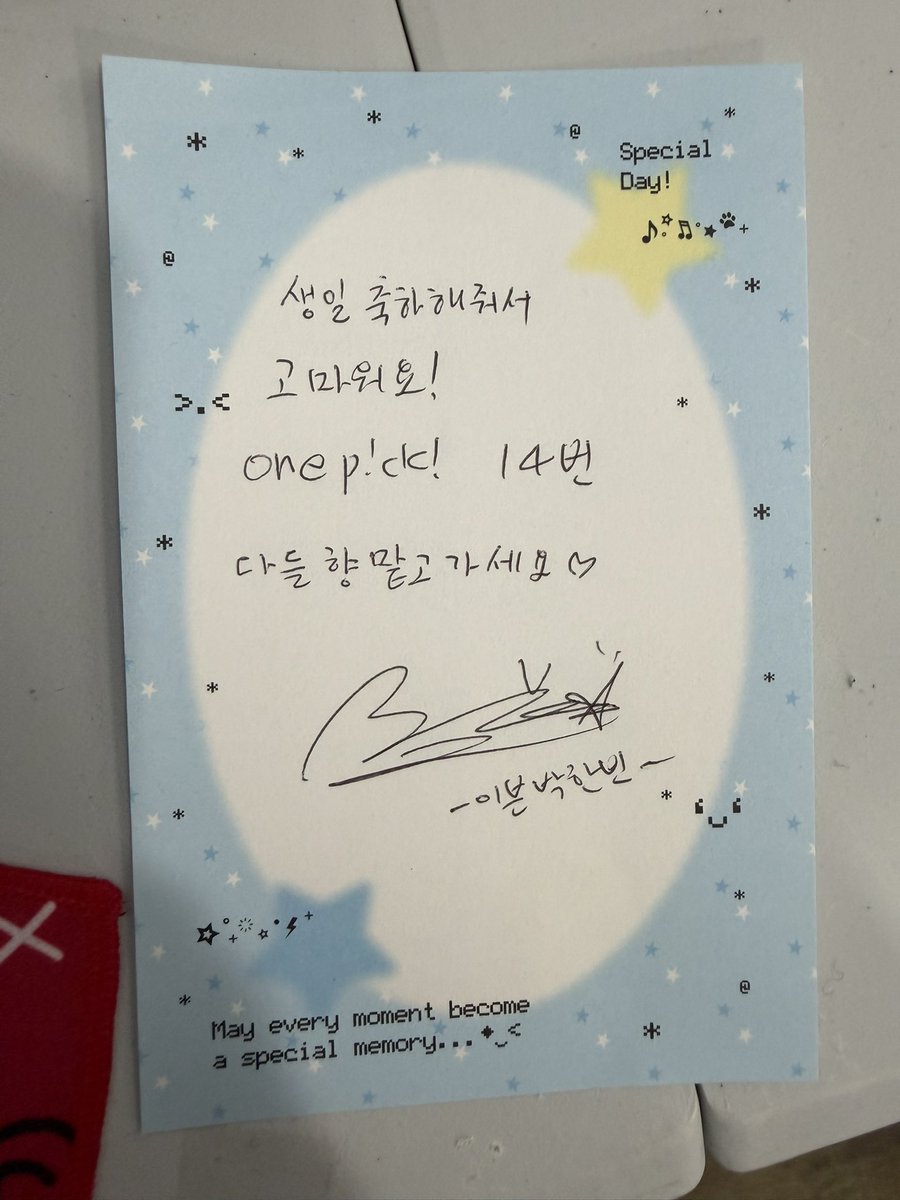 Special
Day!
생일 축하해줘서
고마워요!
>.<
one p!ck! 14번
다들 향 맡고 가세요♡
-이븐 박한빈-
May every moment become
a special memory...